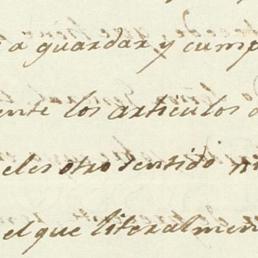 a guardar y cump
ente los articulos
eles otro sentido ni
el que literalmen